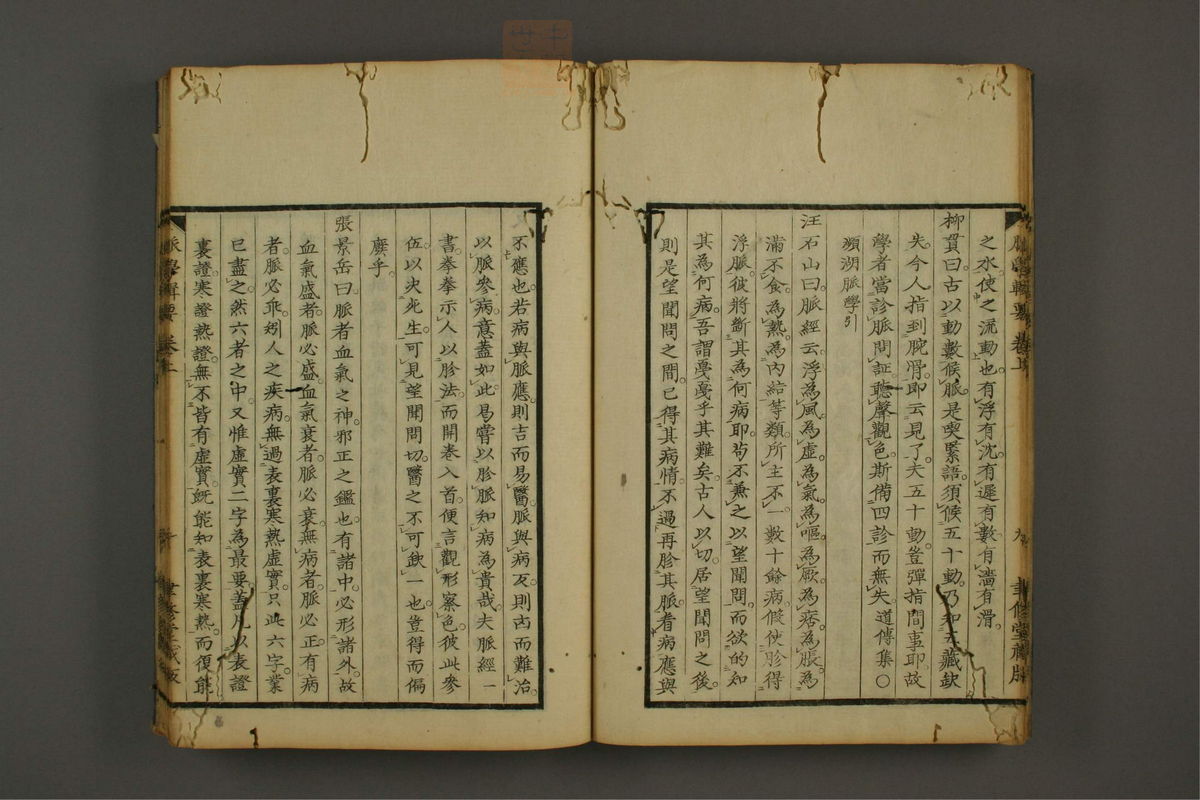 之水使之流動也有浮有沈有遲有數有濇有滑
柳貫曰古以動數候脈是喫緊語須候五十動乃知五藏缺
失今人指到腕骨卽云見了夫五十動豈彈指間事耶故
學者當診脈問証聽聲觀色斯備四診而無失道傳集○
瀕湖脈學引
汪石山曰脈經云浮為風為虛為氣為嘔為厥為痞為脹為
滿不食為熱為內結等類所主不一數十餘病假使診得
浮脈彼將斷其為何病耶苟不兼之以望聞問而欲的知
其為何病吾謂戞戞乎其難矣古人以切居望聞問之後
則是望聞問之間已得其病情不過再診其脈看病應與
不應也若病與脈應則吉而易醫脈與病反則凶而難治
以脈參病意蓋如此易嘗以診脈知病為貴哉夫脈經一
書拳拳示人以診法而開卷入首便言觀形察色彼此參
伍以決死生可見望聞問切醫之不可缺一也豈得而偏
廢乎
張景岳曰脈者血氣之神邪正之鑑也有諸中必形諸外故
血氣盛者脈必盛血氣衰者脈必衰無病者脈必正有病
者脈必乖矧人之疾病無過表裏寒熱虛實只此六字業
已盡之然六者之中又惟虛實二字為最要蓋凡以表證
裏證寒證熱證無不皆有虛實旣能知表裏寒熱而復能
脈學輯要 卷上
九
聿修堂藏版
脈學輯要 卷上